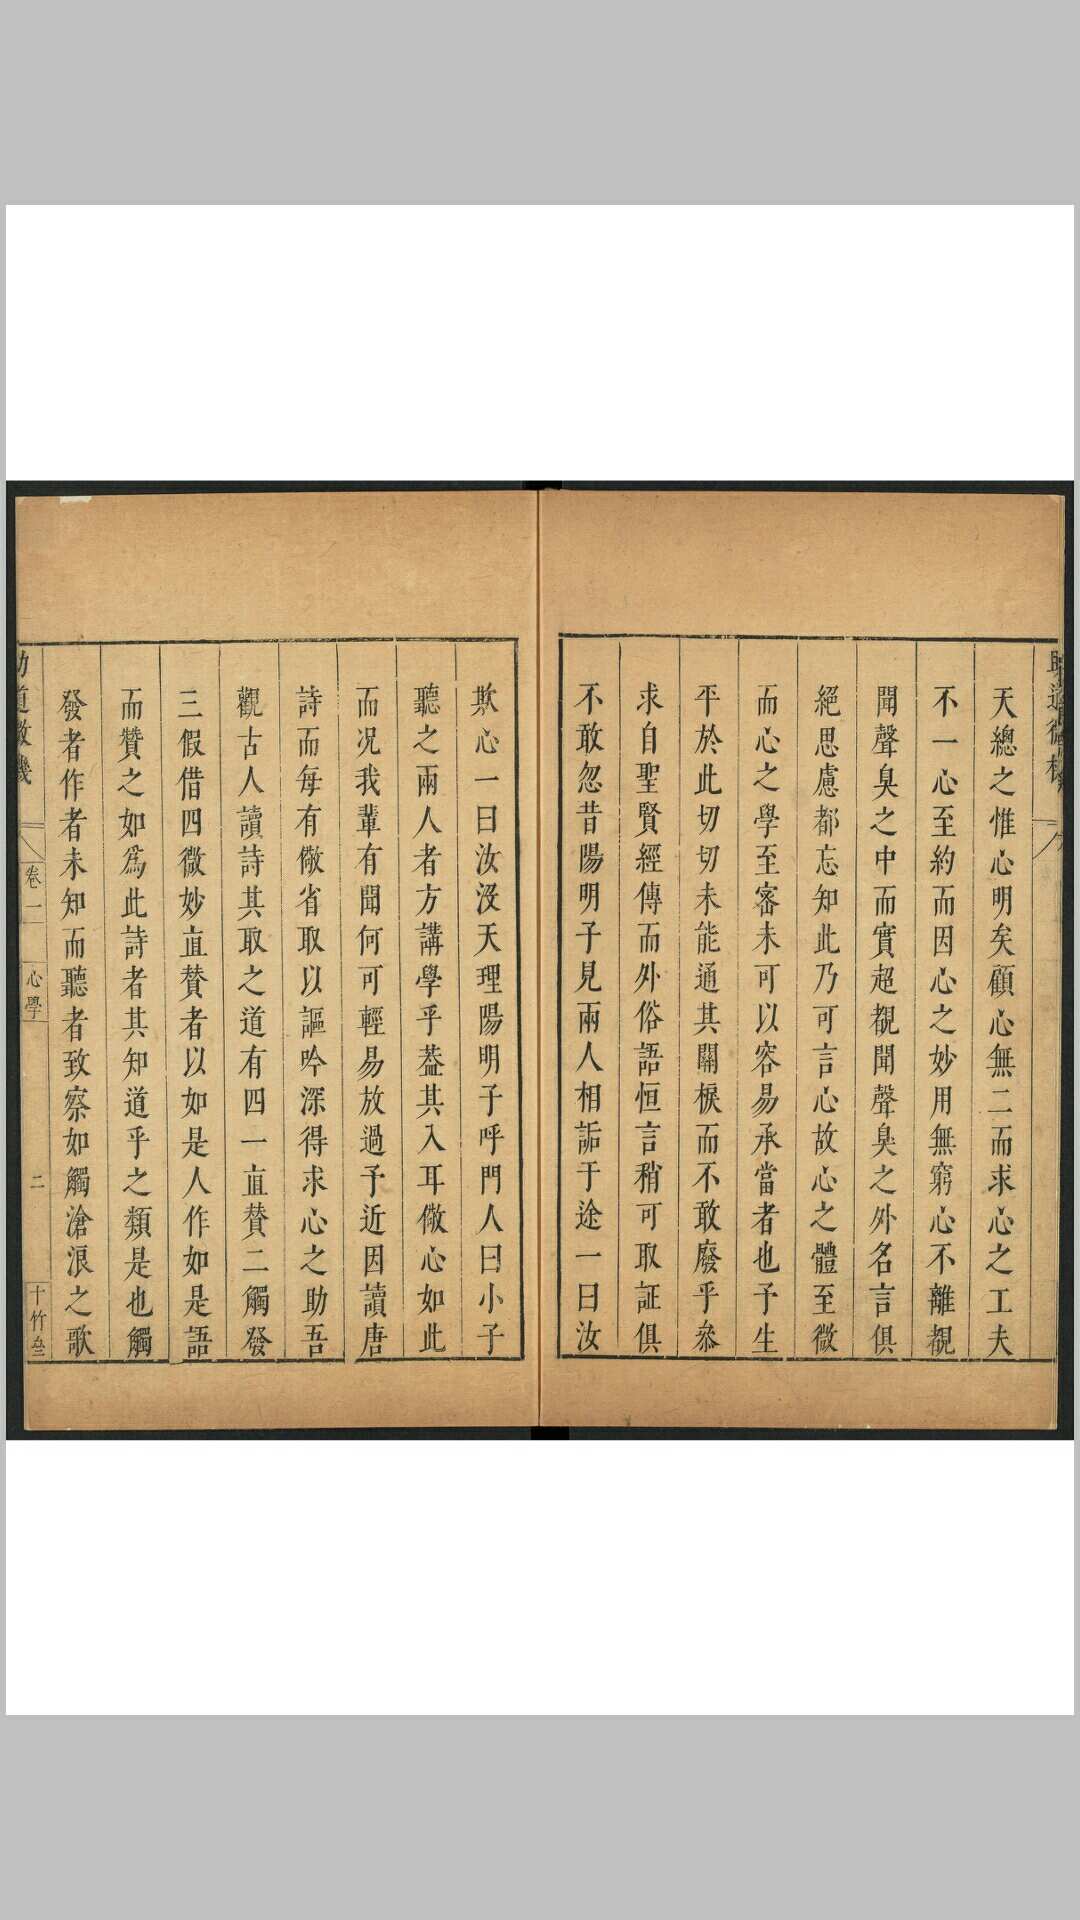 天總之惟心明矣顧心無二而求心之工夫
不一心至約而因心之妙用無窮心不離覩
聞聲臭之中而實超覩聞聲臭之外名言俱
絕思慮都忘知此乃可言心故心之體至微
而心之學至密未可以容易承當者也予生
平於此切切未能通其關棙而不敢廢乎叅
求自聖賢經傳而外俗語恒言稍可取証俱
不敢忽昔陽明子見兩人相詬于途一曰汝
欺心一曰汝沒天理陽明子呼門人曰小子
聽之兩人者方講學乎葢其入耳儆心如此
而况我輩有聞何可輕易放過予近因讀唐
詩而每有儆省取以謳吟深得求心之助吾
觀古人讀詩其取之道有四一直賛二觸發
三假借四微妙直賛者以如是人作如是語
而贊之如爲此詩者其知道乎之類是也觸
發者作者未知而聽者致察如觸滄浪之歌
助道微機
卷一
心學
二
十竹叁